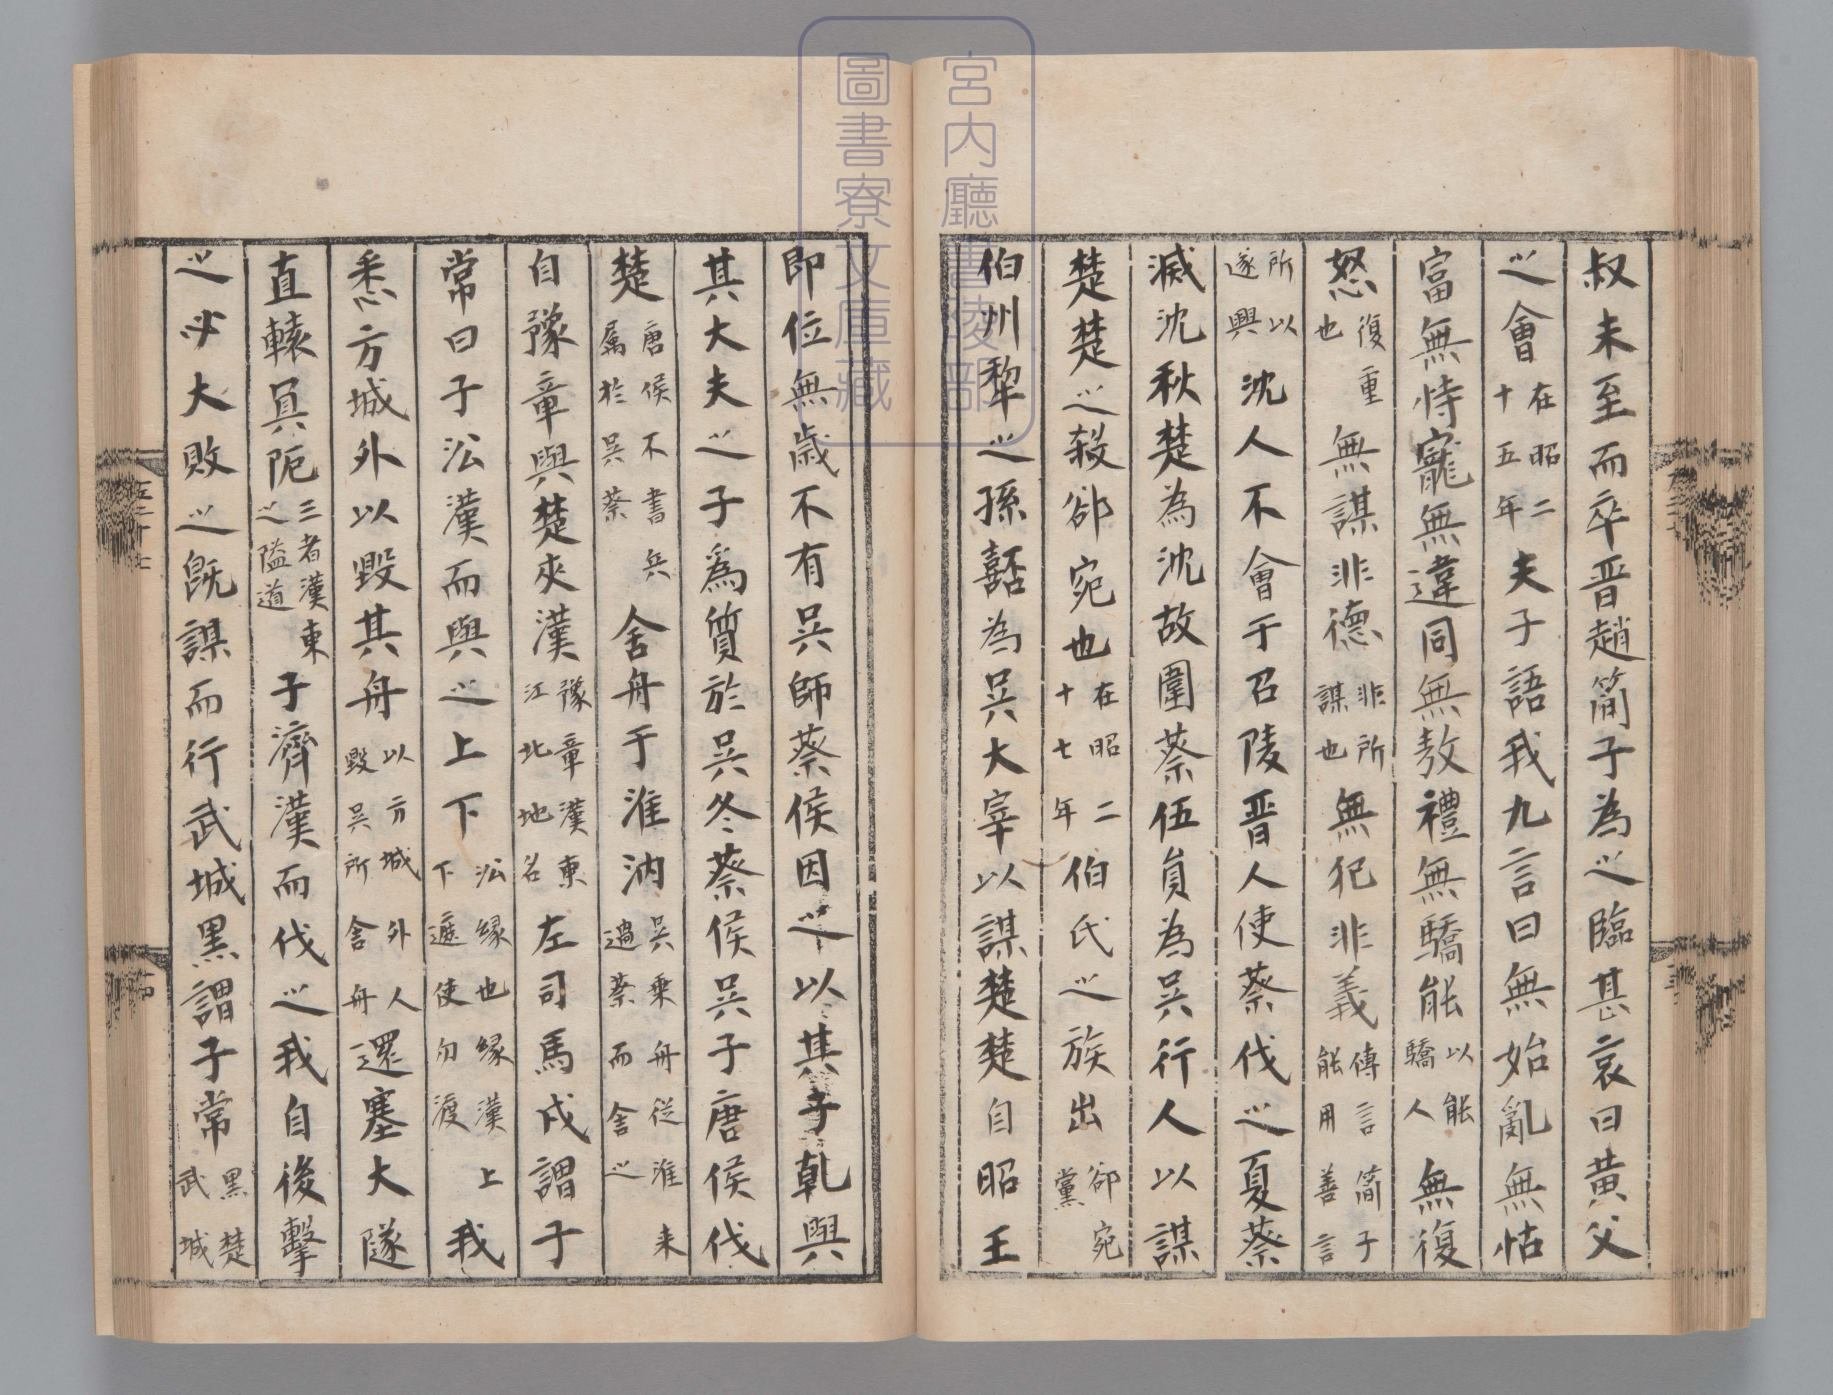 叔未至而卒晋趙簡子為之臨甚哀曰黄父
之會在昭二十五年夫子語我九言曰無始亂無怙
富無恃寵無違同無敖禮無驕能以能驕人無復
怒復重也無謀非德非所謀也無犯非義傳言簡子能用善言
所以遂興沈人不會于召陵晋人使蔡伐之夏蔡
滅沈秋楚為沈故圍蔡伍員為吴行人以謀
楚楚之殺郤宛也在昭二十七年伯氏之族出郤宛黨
伯州犂之孫嚭為吴大宰以謀楚楚自昭王
即位無歳不有吴師蔡侯因之以其子乹與
其大夫之子為質於吴冬蔡侯吴子唐侯伐
楚唐侯不書兵属於吴蔡舍舟于淮汭吴乗舟従淮来過蔡而舎之
自豫章與楚夾漢豫章漢東江北地名左司馬戌謂子
常曰子㳂漢而與之上下㳂縁也縁漢上下遮使勿渡我
悉方城外以毀其舟以方城外人毀吴所舎舟還塞大隧
直轅冥阨三者漢東之隘道子濟漢而伐之我自後擊
之必大敗之既謀而行武城黒謂子常黒楚武城
宮内廳書陵部
圖書寮文庫藏